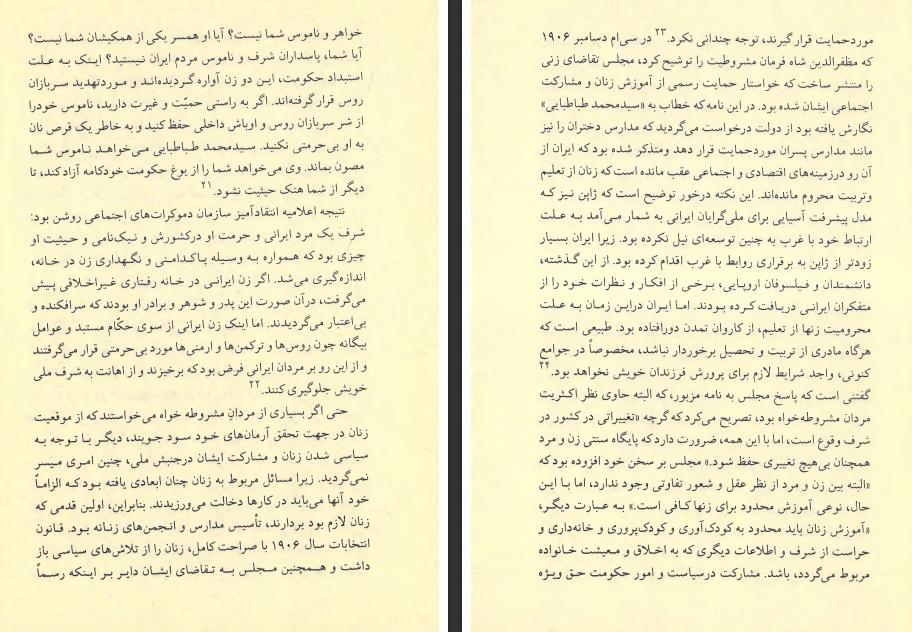 خواهر و ناموس شما نیست؟ آیا او همسر یکی از همکیشان شما نیست؟
آیا شما، پاسداران شرف و ناموس مردم ایران نیستید؟ اینک به علت
استبداد حکومت، این دو زن آواره گردیده‌اند و موردتهدید سربازان
روس قرار گرفته‌اند. اگر به راستی حمیّت و غیرت دارید، ناموس خودرا
از شر سربازان روس و اوباش داخلی حفظ کنید و به خاطر یک قرص نان
به او بی‌حرمتی نکنید. سیدمحمد طباطبایی می‌خواهد ناموس شما
مصون بماند. وی می‌خواهد شما را از یوغ حکومت خودکامه آزاد کند، تا
دیگر از شما هتک حیثیت نشود.۲۱
نتیجه اعلامیه انتقادآمیز سازمان دموکرات‌های اجتماعی روشن بود:
شرف یک مرد ایرانی و حرمت او درکشورش و نیک‌نامی و حیثیت او
چیزی بود که همواره به وسیله پاکدامنی و نگهداری زن در خانه،
اندازه‌گیری می‌شد. اگر زن ایرانی در خانه رفتاری غیراخلاقی پیش
می‌گرفت، درآن صورت این پدر و شوهر و برادر او بودند که سرافکنده و
بی‌اعتبار می‌گردیدند. اما اینک زن ایرانی از سوی حکّام مستبد و عوامل
بیگانه چون روس‌ها و ترکمن‌ها و ارمنی‌ها مورد بی‌حرمتی قرار می‌گرفتند
و از این رو بر مردان ایرانی فرض بود که برخیزند و از اهانت به شرف ملی
خویش جلوگیری کنند.۲۲
حتی اگر بسیاری از مردانِ مشروطه خواه می‌خواستند که از موقعیت
زنان در جهت تحقق آرمان‌های خود سود جویند، دیگر با توجه به
سیاسی شدن زنان و مشارکت ایشان درجنبش ملی، چنین امری میسر
نمی‌گردید. زیرا مسائل مربوط به زنان چنان ابعادی یافته بود که الزاماً
خود آنها می‌باید در کارها دخالت می‌ورزیدند. بنابراین، اولین قدمی که
زنان لازم بود بردارند، تأسیس مدارس و انجمن‌های زنانه بود. قانون
انتخابات سال ۱۹۰۶ با صراحت کامل، زنان را از تلاش‌های سیاسی باز
داشت و همچنین مجلس به تقاضای ایشان دایر بر اینکه رسماً
موردحمایت قرار گیرند، توجه چندانی نکرد.۲۳ در سی‌ام دسامبر ۱۹۰۶
که مظفرالدین شاه فرمان مشروطیت را توشیح کرد، مجلس تقاضای زنی
را منتشر ساخت که خواستار حمایت رسمی از آموزش زنان و مشارکت
اجتماعی ایشان شده بود. در این نامه که خطاب به «سیدمحمد طباطبایی»
نگارش یافته بود از دولت درخواست می‌گردید که مدارس دختران را نیز
مانند مدارس پسران موردحمایت قرار دهد ومتذکر شده بود که ایران از
آن رو درزمینه‌های اقتصادی و اجتماعی عقب مانده است که زنان از تعلیم
وتربیت محروم مانده‌اند. این نکته درخور توضیح است که ژاپن نیز که
مدل پیشرفت آسیایی برای ملی‌گرایان ایرانی به شمار می‌آمد به علت
ارتباط خود با غرب به چنین توسعه‌ای نیل نکرده بود. زیرا ایران بسیار
زودتر از ژاپن به برقراری روابط با غرب اقدام کرده بود. از این گذشته،
دانشمندان و فیلسوفان اروپایی، برخی از افکار و نظرات خود را از
متفکران ایرانی دریافت کرده بودند. اما ایران دراین زمان به علت
محرومیت زنها از تعلیم، از کاروان تمدن دورافتاده بود. طبیعی است که
هرگاه مادری از تربیت و تحصیل برخوردار نباشد، مخصوصاً در جوامع
کنونی، واجد شرایط لازم برای پرورش فرزندان خویش نخواهد بود.۲۴
گفتنی است که پاسخ مجلس به نامه مزبور، که البته حاوی نظر اکثریت
مردان مشروطه‌خواه بود، تصریح می‌کرد که گرچه «تغییراتی در کشور در
شرف وقوع است، اما با این همه، ضرورت دارد که پایگاه سنتی زن و مرد
همچنان بی‌هیچ تغییری حفظ شود.» مجلس بر سخن خود افزوده بود که
«البته بین زن و مرد از نظر عقل و شعور تفاوتی وجود ندارد، اما با این
حال، نوعی آموزش محدود برای زنها کافی است.» به عبارت دیگر،
«آموزش زنان باید محدود به کودک‌آوری و کودک‌پروری و خانه‌داری و
حراست از شرف و اطلاعات دیگری که به اخلاق و معیشت خانواده
مربوط می‌گردد، باشد. مشارکت درسیاست و امور حکومت حق ویژه